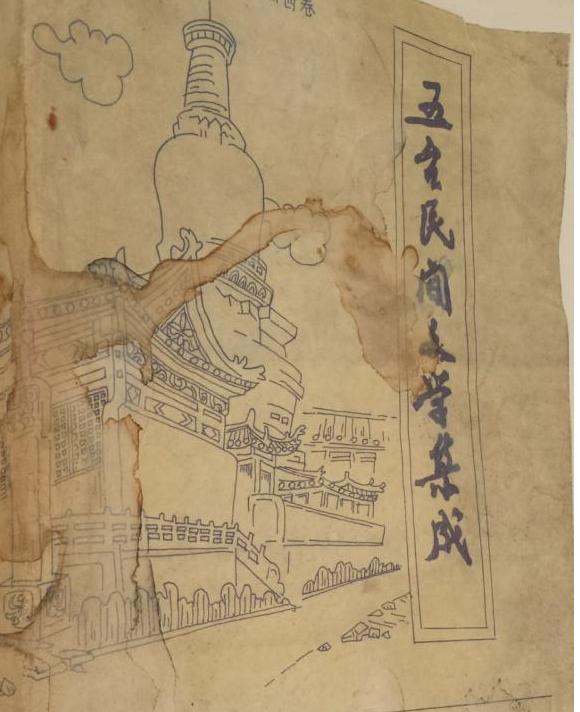 四卷
五台民间文学集成